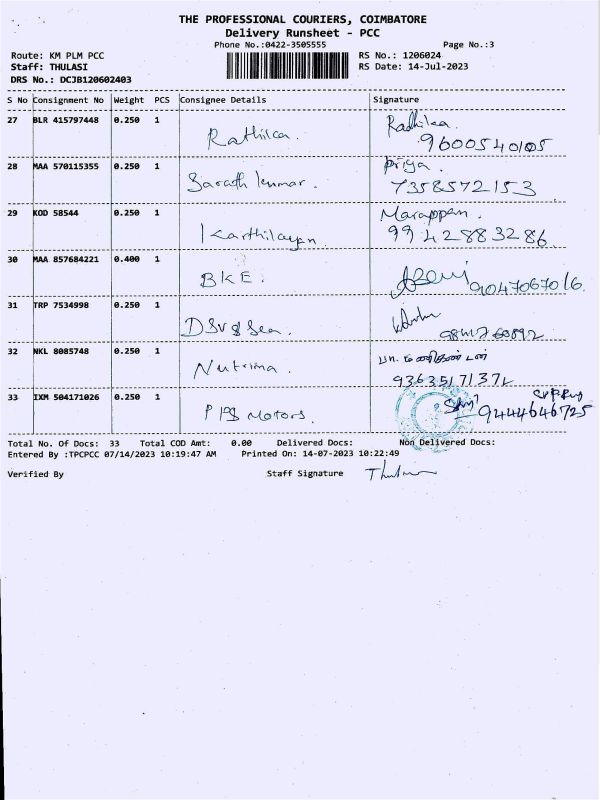 THE PROFESSIONAL COURIERS, COIMBATORE
Delivery Runsheet - PCC
Phone No.:0422-3505555 Page No.:3
Route: KM PLM PCC RS No.: 1206024
Staff: THULASI RS Date: 14-Jul-2023
DRS No.: DCJB120602403
S No Consignment No Weight PCS Consignee Details Signature
27 BLR 415797448 0.250 1 Rathika. Radhika.
9600540105
28 MAA 570115355 0.250 1 Sarath kumar. Priya.
7358572153
29 KOD 58544 0.250 1 Karthikayan. Marappan.
9942883286
30 MAA 857684221 0.400 1 BKE. 9047067016.
31 TRP 7534998 0.250 1
32 NKL 8085748 0.250 1 Nutrima.
9363517137
33 IXM 504171026 0.250 1 Motors. 9444646725
Total No. Of Docs: 33 Total COD Amt: 0.00 Delivered Docs: Non Delivered Docs:
Entered By :TPCPCC 07/14/2023 10:19:47 AM Printed On: 14-07-2023 10:22:49
Verified By Staff Signature